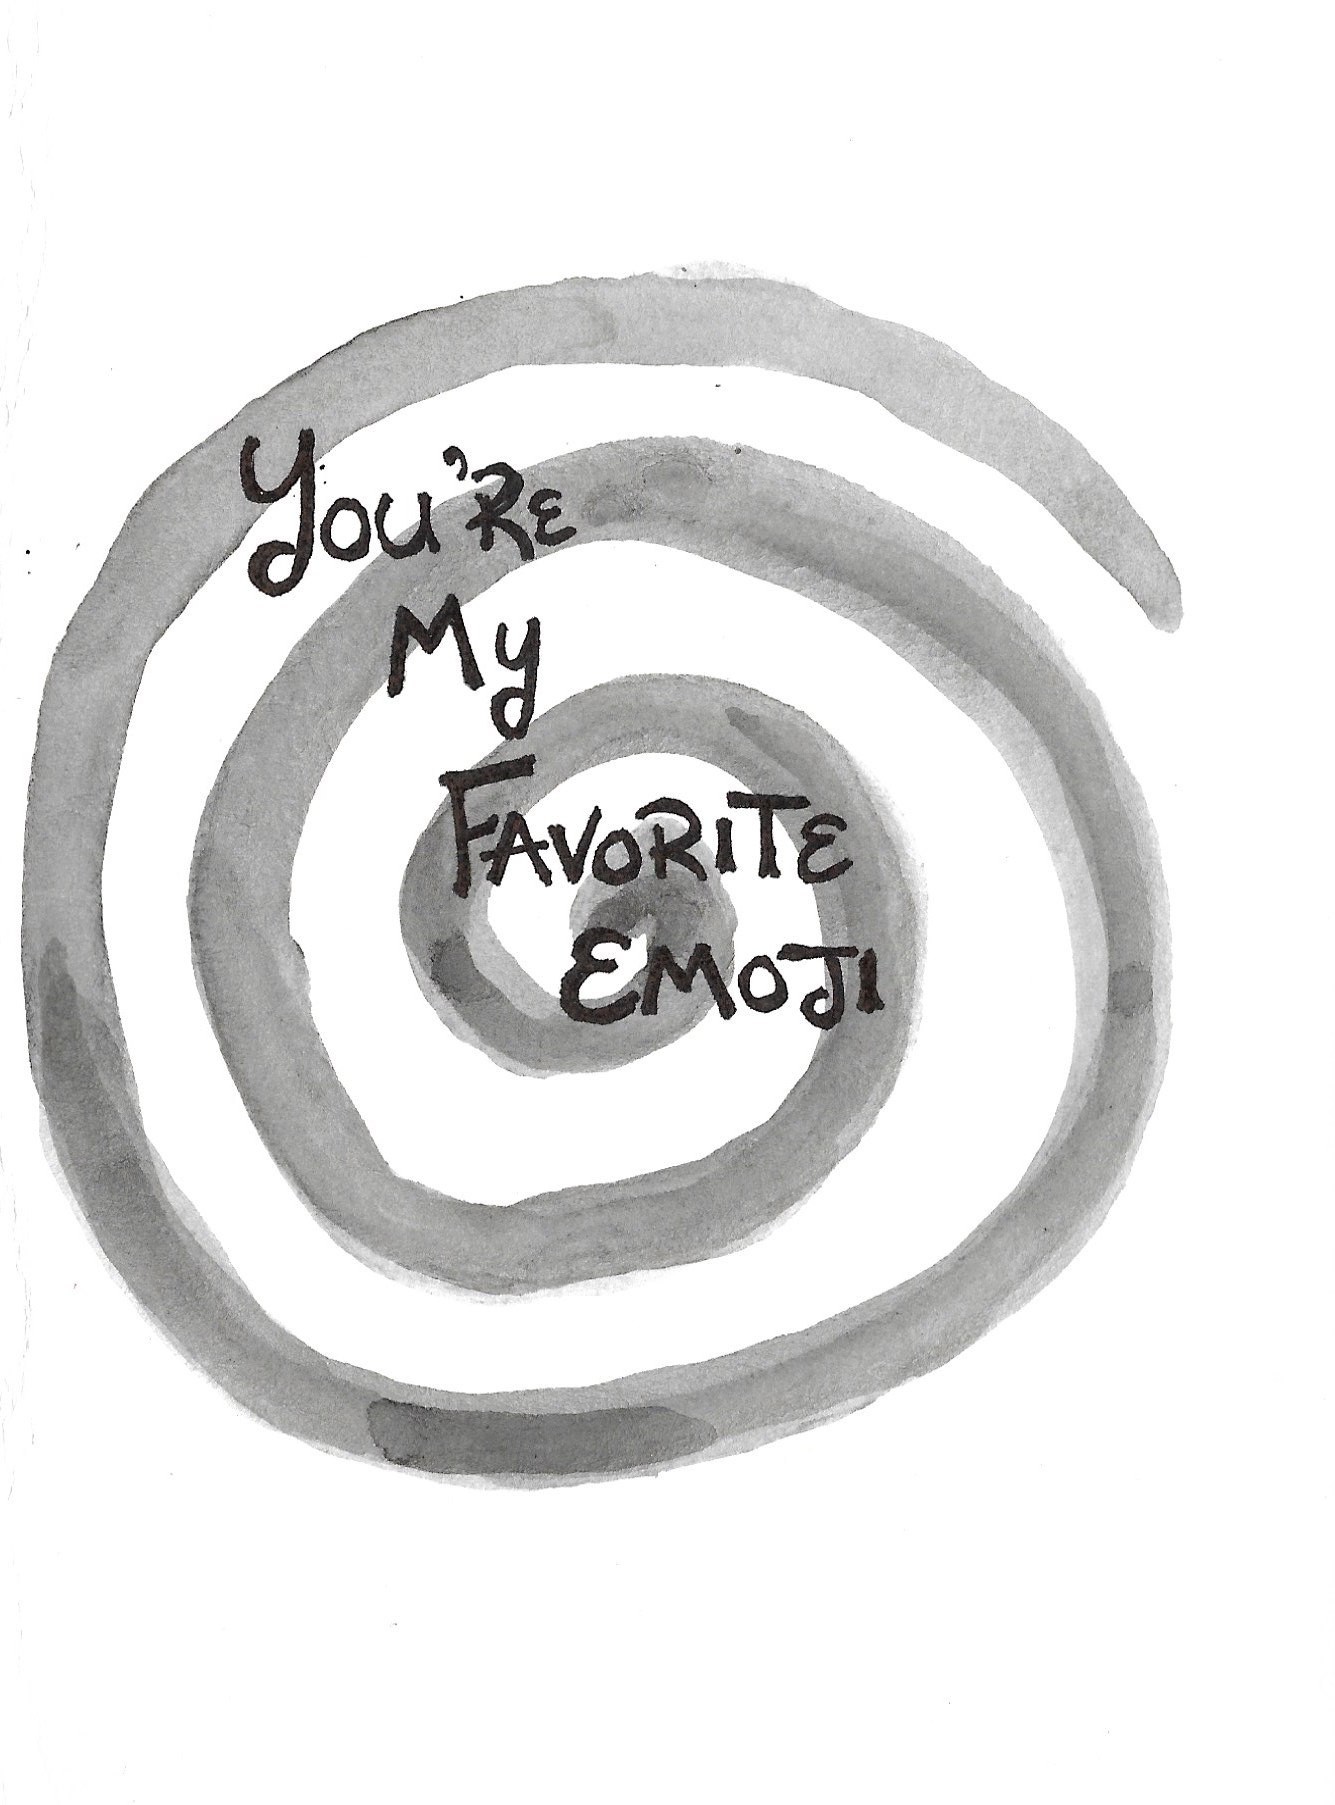 You're
My
FAVORITE
EMOJI